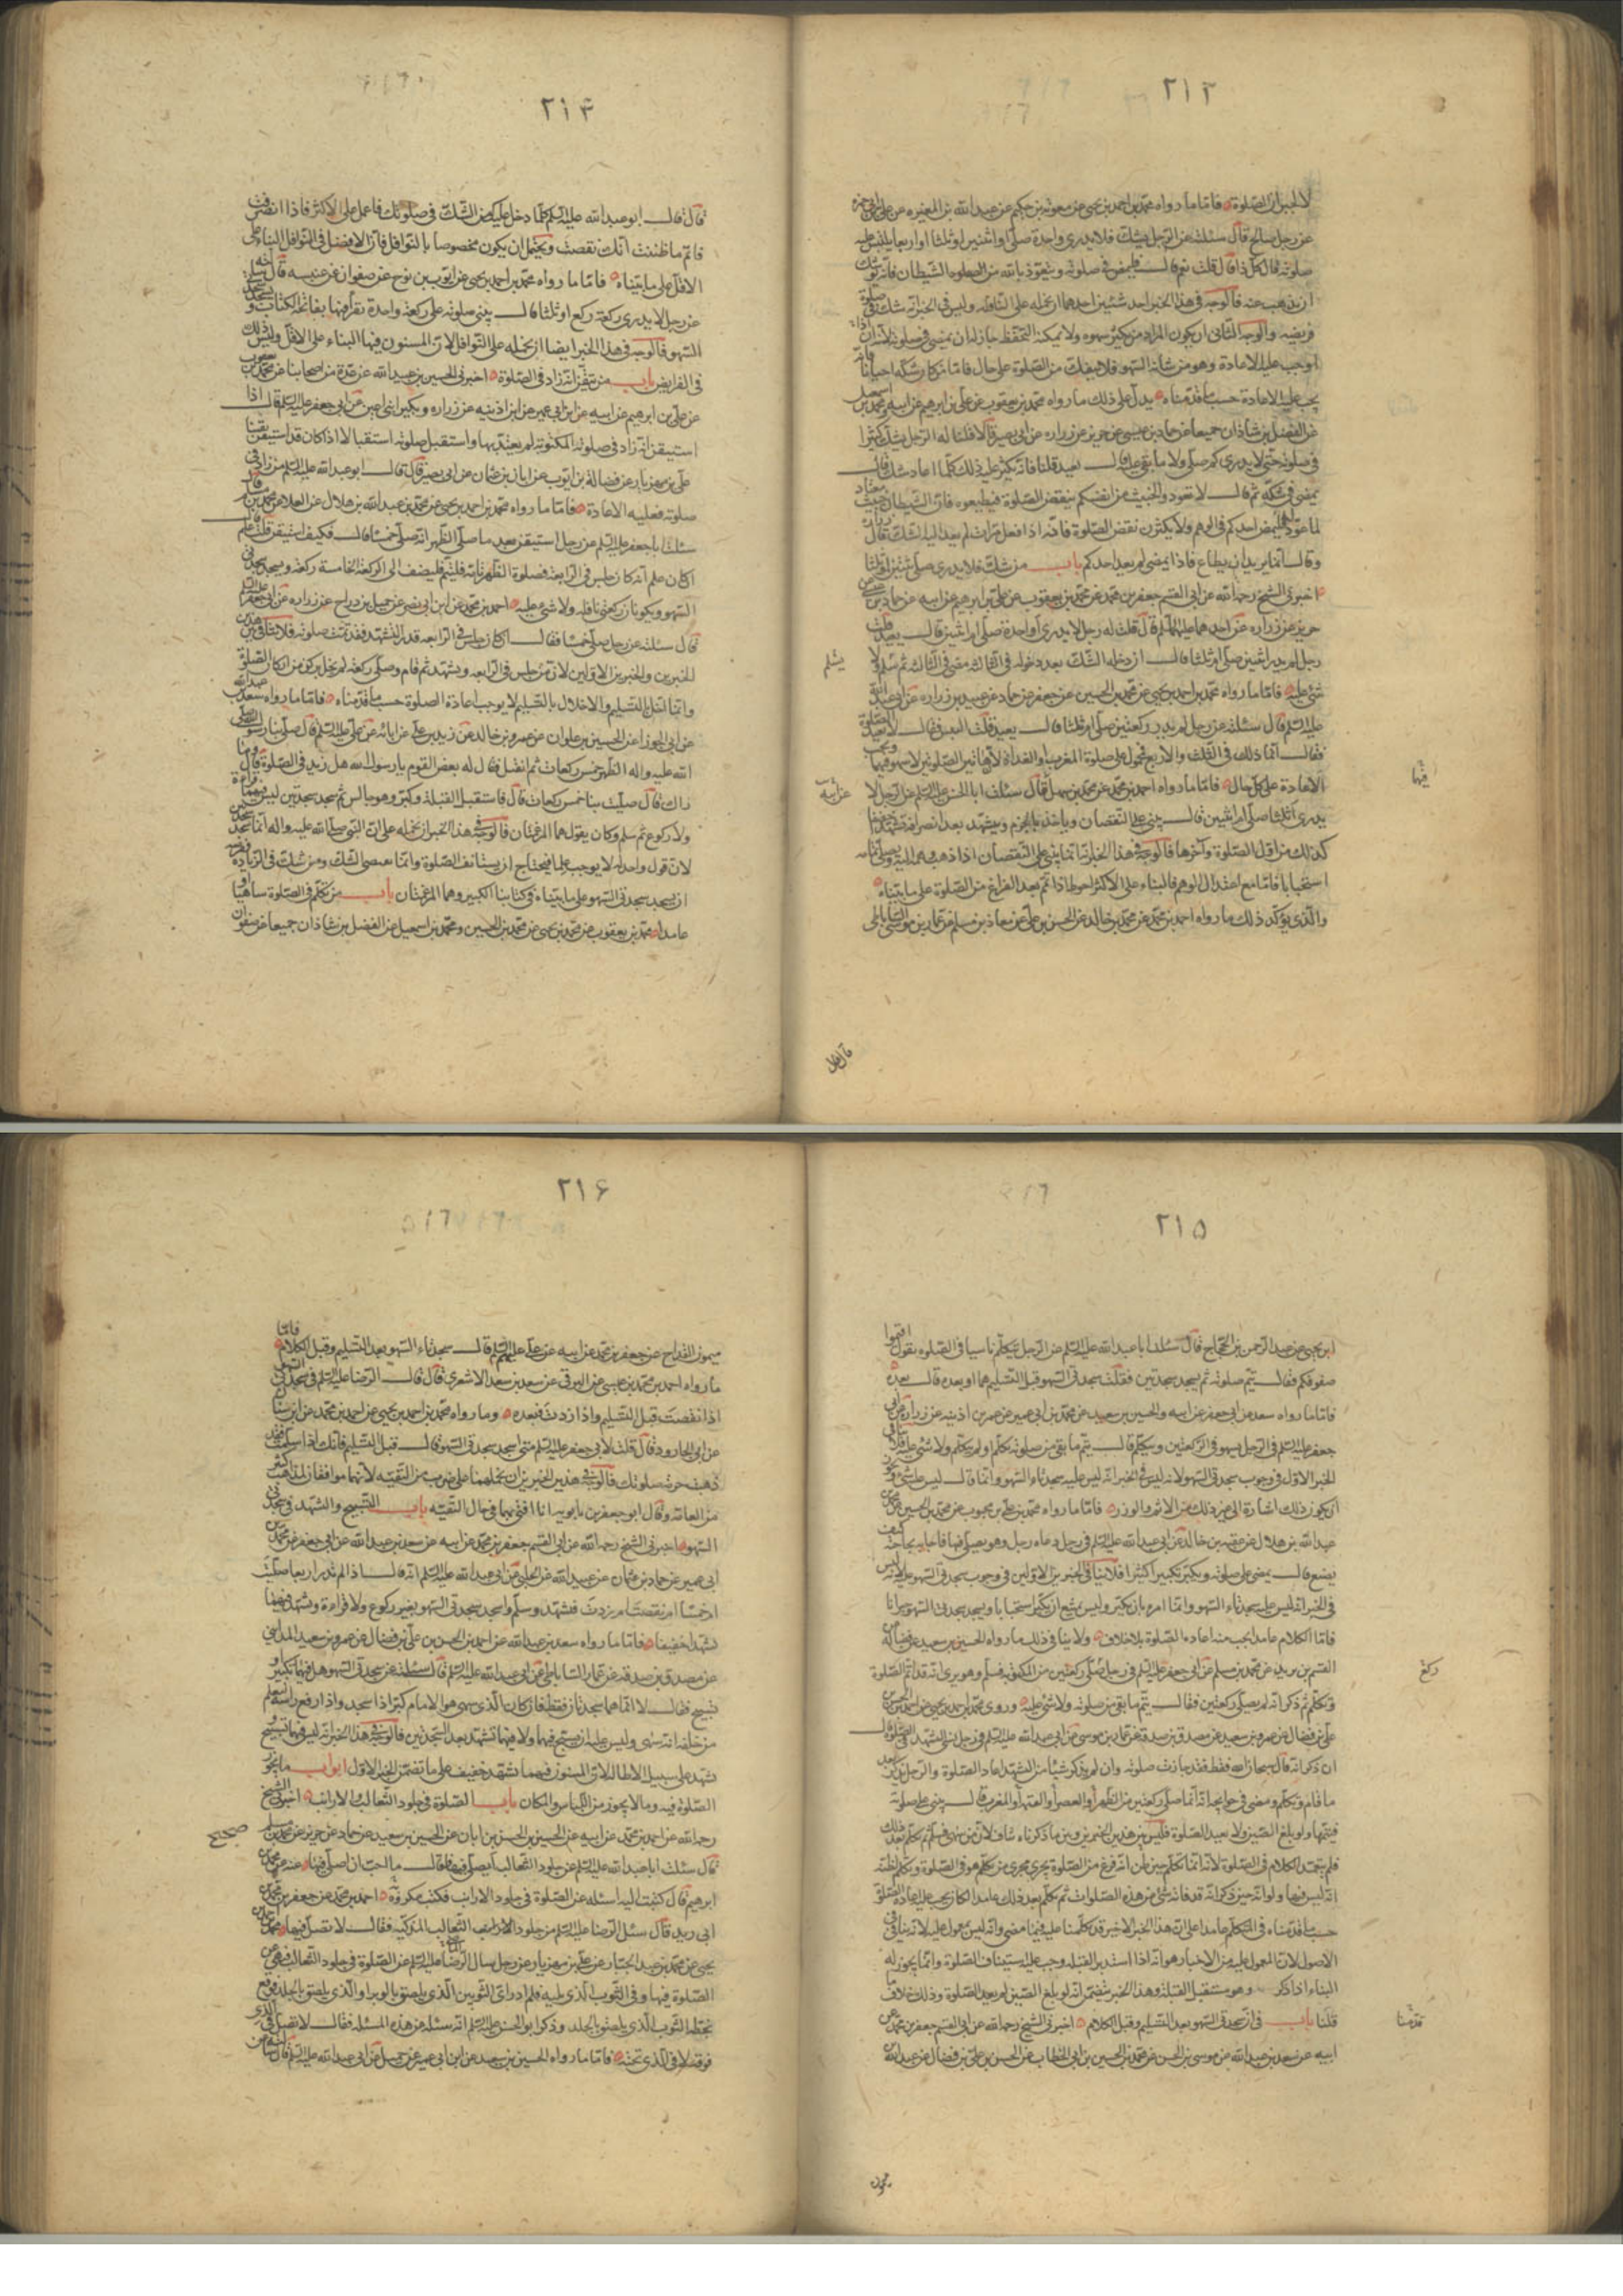 ٢١٣
لا لجبران الصلوة فاما ما رواه محمد بن احمد بن يحيى عن معوية بن حكيم عن عبد الله بن المغيره عن علي بن ابي حمزه
عن رجل صالح قال سئلته عن الرجل يشك فلا يدرى واحدة صلى او اثنتين او ثلثا او اربعا يلتبس عليه
صلوته قال كل ذا قال قلت نعم قال فليمض فى صلوته ويتعوذ بالله من الشيطان فانه يوشك
ان يذهب عنه فالوجه فى هذا الخبر احد شيئين احدهما ان نحمله على النافلة وليس فى الخبر انه شك فى صلوة
فريضه والوجه الثانى ان يكون المراد من كثر سهوه ولا يمكنه التحفظ جاز له ان يمضى فى صلوته لانه ان
اوجب عليه الاعادة وهو من شانه السهو فلا ينفك من الصلوة على حال فاما من كان شكه احيانا فانه
يجب عليه الاعادة حسب ما قدمناه يدل على ذلك ما رواه محمد بن يعقوب عن علي بن ابرهيم عن ابيه ومحمد بن اسمعيل
عن الفضل بن شاذان جميعا عن حماد بن عيسى عن حريز عن زراره عن ابى بصير قالا قلنا له الرجل يشك كثيرا
فى صلوته حتى لا يدرى كم صلى ولا ما بقى عليه قال يعيد قلنا فانه يكثر عليه ذلك كلما اعاد شك قال
يمضى فى شكه ثم قال لا تعودوا الخبيث من انفسكم بنقض الصلوة فتطمعوه فان الشيطان خبيث معتاد
لما عود فليمض احدكم فى الوهم ولا يكثرن نقض الصلوة فانه اذا فعل مرات لم يعد اليه الشك قال زراره
وقال انما يريد ان يطاع فاذا لم يعد احدكم باب من شك فلا يدرى صلى ثنتين او ثلثا
اخبرنى الشيخ رحمه الله عن ابى القسم جعفر بن محمد عن محمد بن يعقوب عن علي بن ابرهيم عن ابيه عن حماد بن عيسى
حريز عن زراره عن احدهما عليهما السلم قال قلت له رجل لا يدرى أواحدة صلى ام ثنتين قال يعيد قلت
رجل لم يدر اثنتين صلى ام ثلثا فقال ان دخله الشك بعد دخوله فى الثالثة مضى فى الثالثه ثم صلى ولا
يسلم
شئ عليه فاما ما رواه محمد بن احمد بن يحيى عن محمد بن الحسين عن جعفر عن حماد عن عبيد بن زراره عن ابى عبد الله
عليه السلم قال سئلته عن رجل لم يدر ركعتين صلى ام ثلثا قال يعيد قلت اليس يقال لا يعيد الصلوة فقيه
فقال انما ذلك فى الثلث والاربع محمول على صلوة المغرب او الغداة لان هاتين الصلوتين لا سهو فيهما ويجب
فيها
الاعادة على كل حال فاما ما رواه احمد بن محمد عن محمد بن سهل قال سئلت ابا الحسن عليه السلم عن الرجل لا
عن ابيه
يدرى اثلثا صلى ام اثنتين قال يبنى على النقصان وياخذ بالجزم ويتشهد بعد انصرافه تشهدا خفيفا
كذلك من اقل الصلوة وآخرها فالوجه فى هذا الخبر انه انما يبنى على النقصان اذا ذهب وهمه اليه ويصلى تمامه
استحبابا فاما مع اعتدال الوهم فالبناء على الاكثر احوط اذا تم بعد الفراغ من الصلوة على ما بيناه
والذى يؤكد ذلك ما رواه احمد بن محمد عن محمد بن خالد عن الحسن بن علي عن معاذ بن مسلم عن عمار بن موسى الساباطى
قال قال
٢١٤
قال قال ابو عبد الله عليه السلم كلما دخل عليك من الشك فى صلوتك فاعمل على الاكثر فاذا انصرفت
فاتم ما ظننت انك نقصت ويحتمل ان يكون مخصوصا بالنوافل فان الافضل فى النوافل البناء على
الاقل على ما بيناه فاما ما رواه محمد بن احمد بن يحيى عن ايوب بن نوح عن صفوان عن عنبسه قال سئلته
عن رجل لا يدرى ركعة ركع او ثلثا قال يبنى صلوته على ركعة واحدة تقرأ فيها بفاتحة الكتاب ويسجد سجدتى
السهو فالوجه فى هذا الخبر ايضا ان نحمله على النوافل لان المسنون فيها البناء على الاقل وليس ذلك
فى الفرايض باب من تيقن انه زاد فى الصلوة اخبرنى الحسين بن عبيد الله عن عدة من اصحابنا عن محمد بن يعقوب
عن علي بن ابرهيم عن ابيه عن ابن ابى عمير عن ابن اذينه عن زراره وبكير ابنى اعين عن ابى جعفر عليه السلم قال اذا
استيقن انه زاد فى صلوته المكتوبة لم يعتد بها واستقبل صلوته استقبالا اذا كان قد استيقن يقينا
علي بن مهزيار عن فضالة بن ايوب عن ابان بن عثمان عن ابى بصير قال قال ابو عبد الله عليه السلم من زاد فى
صلوته فعليه الاعادة فاما ما رواه محمد بن احمد بن يحيى عن محمد بن عبد الله بن هلال عن العلا عن محمد بن مسلم قال
سئلت ابا جعفر عليه السلم عن رجل استيقن بعد ما صلى الظهر انه صلى خمسا قال فكيف استيقن قلت علم قال
ان كان علم انه كان جلس فى الرابعة فصلوة الظهر تامه فليقم فليضف الى الركعة الخامسة ركعة ويسجد سجدتى
السهو ويكونان ركعتى نافله ولا شئ عليه احمد بن محمد عن ابن ابى نصر عن جميل بن دراج عن زراره عن ابى جعفر عليه السلم
قال سئلته عن رجل صلى خمسا فقال ان كان جلس فى الرابعه قدر التشهد فقد تمت صلوته فلا تنافى بين هذين
الخبرين والخبرين الاولين لان من جلس فى الرابعه وتشهد ثم قام وصلى ركعة لم يخل بركن من اركان الصلوة
وانما اخل بالتسليم والاخلال بالتسليم لا يوجب اعادة الصلوة حسب ما قدمناه فاما ما رواه سعد بن عبد الله
عن ابى الجوزا عن الحسين بن علوان عن عمرو بن خالد عن زيد بن علي عن ابائه عن علي عليه السلم قال صلى بنا رسول الله صلى
الله عليه واله الظهر خمس ركعات ثم انفتل فقال له بعض القوم يا رسول الله هل زيد فى الصلوة قال وما
ذاك قال صليت بنا خمس ركعات قال فاستقبل القبلة وكبر وهو جالس ثم سجد سجدتين ليس فيهما قراءة
ولا ركوع ثم سلم وكان يقول هما المرغمتان فالوجه فى هذا الخبر ان نحمله على ان النبى صلى الله عليه واله انما سجد
لان قول واحد له لا يوجب علما فيحتاج ان يستانف الصلوة وانما يقتضى الشك ومن شك فى الزياده ففرضه
ان يسجد سجدتى السهو على ما بيناه فى كتابنا الكبير وهما المرغمتان باب من تكلم فى الصلوة ساهيا او
عامدا محمد بن يعقوب عن محمد بن يحيى عن محمد بن الحسين ومحمد بن اسمعيل عن الفضل بن شاذان جميعا عن صفوان
٢١٥
ابن يحيى عن عبد الرحمن بن الحجاج قال سئلت ابا عبد الله عليه السلم عن الرجل يتكلم ناسيا فى الصلوه يقول اقيموا
صفوفكم فقال يتم صلوته ثم يسجد سجدتين فقلت سجدتى السهو قبل التسليم هما او بعده قال بعده
فاما ما رواه سعد عن ابى جعفر عن ابيه والحسين بن سعيد عن محمد بن ابى عمير عن عمر بن اذينه عن زراره عن ابى
جعفر عليه السلم فى الرجل يسهو فى الركعتين ويتكلم قال يتم ما بقى من صلوته تكلم او لم يتكلم ولا شئ عليه فلا ينافى
الخبر الاول فى وجوب سجدتى السهو لانه ليس فى الخبر انه ليس عليه سجدتاء السهو وانما قال ليس عليه شئ ويجوز
ان يكون ذلك اشارة الى غير ذلك من الاثم والوزر فاما ما رواه محمد بن علي بن محبوب عن محمد بن الحسين عن محمد بن
عبد الله بن هلال عن عقبه بن خالد عن ابى عبد الله عليه السلم فى رجل دعاه رجل وهو يصلى فسها فاجابه بحاجته كيف
يصنع قال يمضى على صلوته ويكبر تكبيرا كثيرا فلا ينافى الخبرين الاولين فى وجوب سجدتى السهو عليه لانه ليس
فى الخبر انه ليس عليه سجدتاء السهو وانما امره بان يكبر وليس يمتنع ان يكبر استحبابا ويسجد سجدتى السهو جبرانا
فاما الكلام عامدا يجب منه اعادة الصلوة بلا خلاف ولا ينافى ذلك ما رواه الحسين بن سعيد عن فضاله عن
القسم بن بريد عن محمد بن مسلم عن ابى جعفر عليه السلم فى رجل صلى ركعتين من المكتوبة فسلم وهو يرى انه قد اتم الصلوة
ركع
وتكلم ثم ذكر انه لم يصل غير ركعتين فقال يتم ما بقى من صلوته ولا شئ عليه وروى محمد بن احمد بن يحيى عن احمد بن الحسن بن
علي بن فضال عن عمرو بن سعيد عن مصدق بن صدقة عن عمار بن موسى عن ابى عبد الله عليه السلم فى رجل نسى التشهد فى الصلوة قال
ان ذكر انه قال بسم الله فقط فقد جازت صلوته وان لم يذكر شيئا من التشهد اعاد الصلوة والرجل يذكر بعد
ما قام وتكلم ومضى فى حوايجه انه انما صلى ركعتين من الظهر او العصر او العتمة او المغرب قال يبنى على صلوته
فيتمها ولو بلغ الصين ولا يعيد الصلوة فليس بين هذين الخبرين وبين ما ذكرناه تناف لان من سهى فسلم ثم تكلم بعد ذلك
فلم يتعمد الكلام فى الصلوة لانه انما تكلم حين ظن انه فرغ من الصلوة يجرى مجرى من تكلم هو فى الصلوة وتكلم لظنه
انه ليس فيها ولو انه حين ذكر انه قد فاته شئ من هذه الصلوات ثم تكلم بعد ذلك عامدا لكان يجب عليه اعادة الصلوة
حسب ما قدمناه فى المتكلم عامدا على ان هذا الخبر الاخير قد تكلمنا عليه فيما مضى وانه ليس بمعول عليه لانه ينافى
الاصول لان المعول عليه من الاخبار هو انه اذا استدبر القبلة وجب عليه استيناف الصلوة وانما يجوز له
البناء اذا ذكر وهو مستقبل القبلة وهذا الخبر يتضمن انه لو بلغ الصين لم يعد الصلوة وذلك خلاف ما
قدمنا
قلنا باب فى ان سجدتى السهو بعد التسليم وقبل الكلام اخبرنى الشيخ رحمه الله عن ابى القسم جعفر بن محمد عن
ابيه عن سعد بن عبد الله عن موسى بن الحسن عن محمد بن الحسين بن ابى الخطاب عن الحسن بن علي بن فضال عن عبد الله بن
ميمون
٢١٦
ميمون القداح عن جعفر بن محمد عن ابيه عن علي عليهم السلم قال سجدتاء السهو بعد التسليم وقبل الكلام فاما
ما رواه احمد بن محمد بن عيسى عن البرقى عن سعد بن سعد الاشعرى قال قال الرضا عليه السلم فى سجدتى السهو
اذا نقصت قبل التسليم واذا زدت فبعده وما رواه محمد بن احمد بن يحيى عن احمد بن محمد عن ابن سنان
عن ابى الجارود قال قلت لابى جعفر عليه السلم متى اسجد سجدتى السهو قال قبل التسليم فانك اذا سلمت فقد
ذهبت حرمة صلوتك فالوجه فى هذين الخبرين ان نحملهما على ضرب من التقية لانهما موافقان لمذاهب كثير
من العامة وقال ابو جعفر بن بابويه انا افتى بهما فى حال التقيه باب التسبيح والتشهد فى سجدتى
السهو اخبرنى الشيخ رحمه الله عن ابى القسم جعفر بن محمد عن ابيه عن سعد بن عبد الله عن ابى جعفر عن محمد بن
ابى عمير عن حماد بن عثمان عن عبيد الله عن الحلبى عن ابى عبد الله عليه السلم انه قال اذا لم تدر اربعا صليت
او خمسا ام نقصت ام زدت فتشهد وسلم واسجد سجدتى السهو بغير ركوع ولا قراءة وتشهد فيهما
تشهدا خفيفا فاما ما رواه سعد بن عبد الله عن احمد بن الحسن بن علي بن فضال عن عمرو بن سعيد المداينى
عن مصدق بن صدقه عن عمار الساباطى عن ابى عبد الله عليه السلم قال سئلته عن سجدتى السهو هل فيهما تكبير او
تسبيح فقال لا انما هما سجدتان فقط فان كان الذى سهى هو الامام كبر اذا سجد واذا رفع راسه ليعلم
من خلفه انه سهى وليس عليه ان يسبح فيهما ولا فيهما تشهد بعد السجدتين فالوجه فى هذا الخبر انه ليس فيهما تسبيح و
تشهد على سبيل الاطالة لان المسنون فيهما تشهد خفيف على ما تضمن الخبر الاول ابواب ما يجوز
الصلوة فيه وما لا يجوز من اللباس والمكان باب الصلوة فى جلود الثعالب والارانب اخبرنى الشيخ
رحمه الله عن احمد بن محمد عن ابيه عن الحسين بن الحسن بن ابان عن الحسين بن سعيد عن حماد عن حريز عن محمد بن مسلم
صحيح
قال سئلت ابا عبد الله عليه السلم عن جلود الثعالب ايصلى فيها فقال ما احب ان اصلى فيها عنه عن محمد بن
ابرهيم قال كتبت اليه اسئله عن الصلوة فى جلود الارانب فكتب مكروه احمد بن محمد عن جعفر بن محمد بن
ابى زيد قال سئل الرضا عليه السلم عن جلود الثعالب الذكيه فقال لا تصل فيها محمد بن
يحيى عن محمد بن عبد الجبار عن علي بن مهزيار عن رجل سال الرضا عليه السلم عن الصلوة فى جلود الثعالب فنهى عن
الصلوة فيها وفى الثوب الذى يليه فلم ادر اى الثوبين الذى يلصق بالوبر او الذى يلصق بالجلد فوقع
بخطه الثوب الذى يلصق بالجلد وذكر ابو الحسن عليه السلم انه سئله عن هذه المسئله فقال لا تصل فى الذى
فوقه ولا فى الذى تحته فاما ما رواه الحسين بن سعيد عن ابن ابى عمير عن جميل عن ابى عبد الله عليه السلم قال